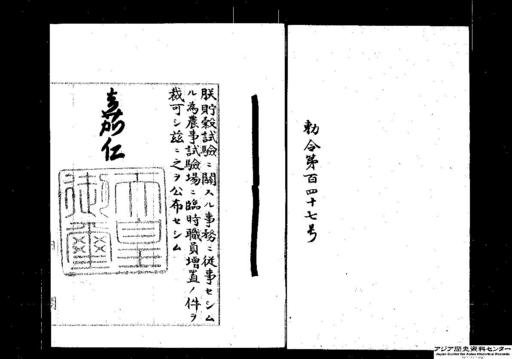 勅令第百四十七号
朕貯穀試験ニ関スル事務ニ従事セシム
ル為農事試験場ニ臨時職員増置ノ件ヲ
裁可シ茲ニ之ヲ公布セシム
嘉仁
天皇御璽
アジア歴史資料センター
Japan Center for Asian Historical Records